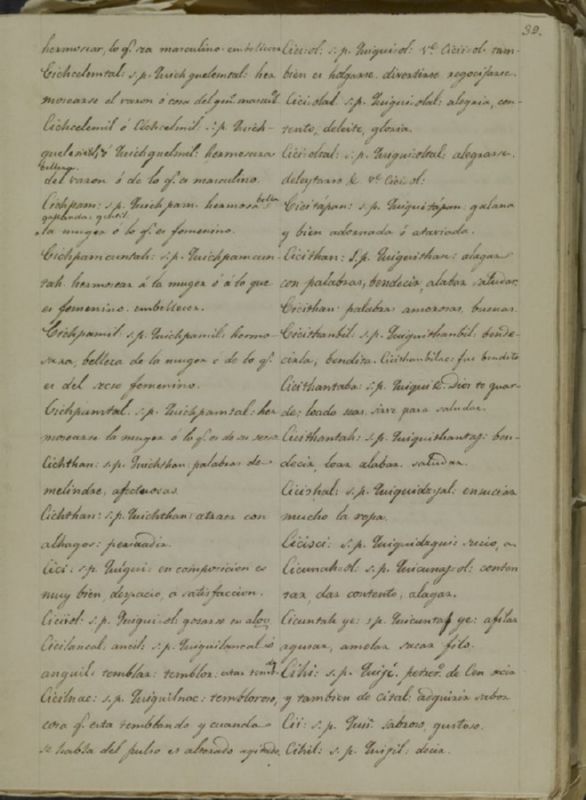 32.
hermosear, lo q.e sea masculino embellecer
Cichcelemtal: s.p. Quichquelemtal: her
mosearse el varon ó cosa del gen.o mascul.
Cichcelemil ó Cichcelmil: s.p. Quich-
quelemil, ó Quichquelmil: hermosura
belleza
del varon ó de lo q.e es masculino.
Cichpam: s.p. Quichpam. hermosa bella
gallarda gentil
la muger ó lo q.e es femenino.
Cichpamcuntah: s.p. Quichpamcun-
tah. hermosear á la muger ó á lo que
es femenino. embellecer.
Cichpamil: s.p. Quichpamil: hermo-
sura, belleza de la muger ó de lo q.e
es del sexo femenino.
Cichpamtal. s.p. Quichpamtal: her
mosearse la muger ó lo q.e es de su sexo
Cichthan: s.p. Quichthan: palabras de
melindre, afectuosas.
Cichthan: s.p. Quichthan: atraer con
alhagos: persuadir.
Cici: s.p. Quigui: en composicion es
muy bien, despacio, a satisfaccion.
Ciciol: s.p. Quiguiol: gozarse en algo
Cicilancal ancil: s.p. Quiguilancal ó
anquil: temblar: temblor: estar
Cicilnac: s.p. Quiguilnac: tembloroso,
cosa q.e esta temblando y cuando
se habla del pulso es alterado agitado,
Ciciol: s.p. Quiguiol: v.e Ciciiol. tam-
bien es holgarse. divertirse regocijarse.
Ciciolal. s.p. Quiguiolal: alegria, con-
tento, deleite, gloria.
Ciciolal: s.p. Quiguiolal: alegrarse.
deleytarse &. v.e Ciciol:
Cicitápan: s.p. Quiguitápan: galana
y bien adornada ó ataviada.
Cicithan: s.p. Quiguithan: alagar
con palabras, bendecir, alabar saludar.
Cicithan: palabras amorosas, buenas.
Cicithanbil: s.p. Quiguithanbil: bende-
cirla, bendita. Cicithanbilac: fue bendito
Cicithantaba: s.p. Quiguit. Dios te guar-
de: loado seas. sirve para saludar.
Cicithantah: s.p. Quiguithantah: ben-
decir, loar alabar. saludar.
s.p. ensuciar
mucho la ropa.
Cicisci: s.p. sucio, a.
Cicunah-ol: s.p. Quicunah-ol: conten
tar, dar contento, alagar.
Cicuntah ye: s.p. Quicuntah ye: afilar
aguzar, amolar sacar filo.
Cihi: s.p. Quiji. de Cen
y tambien de cital: adquirir sabor
Cii: s.p. Quii: sabroso, gustoso.
Cihil: s.p. Quigil: decir.